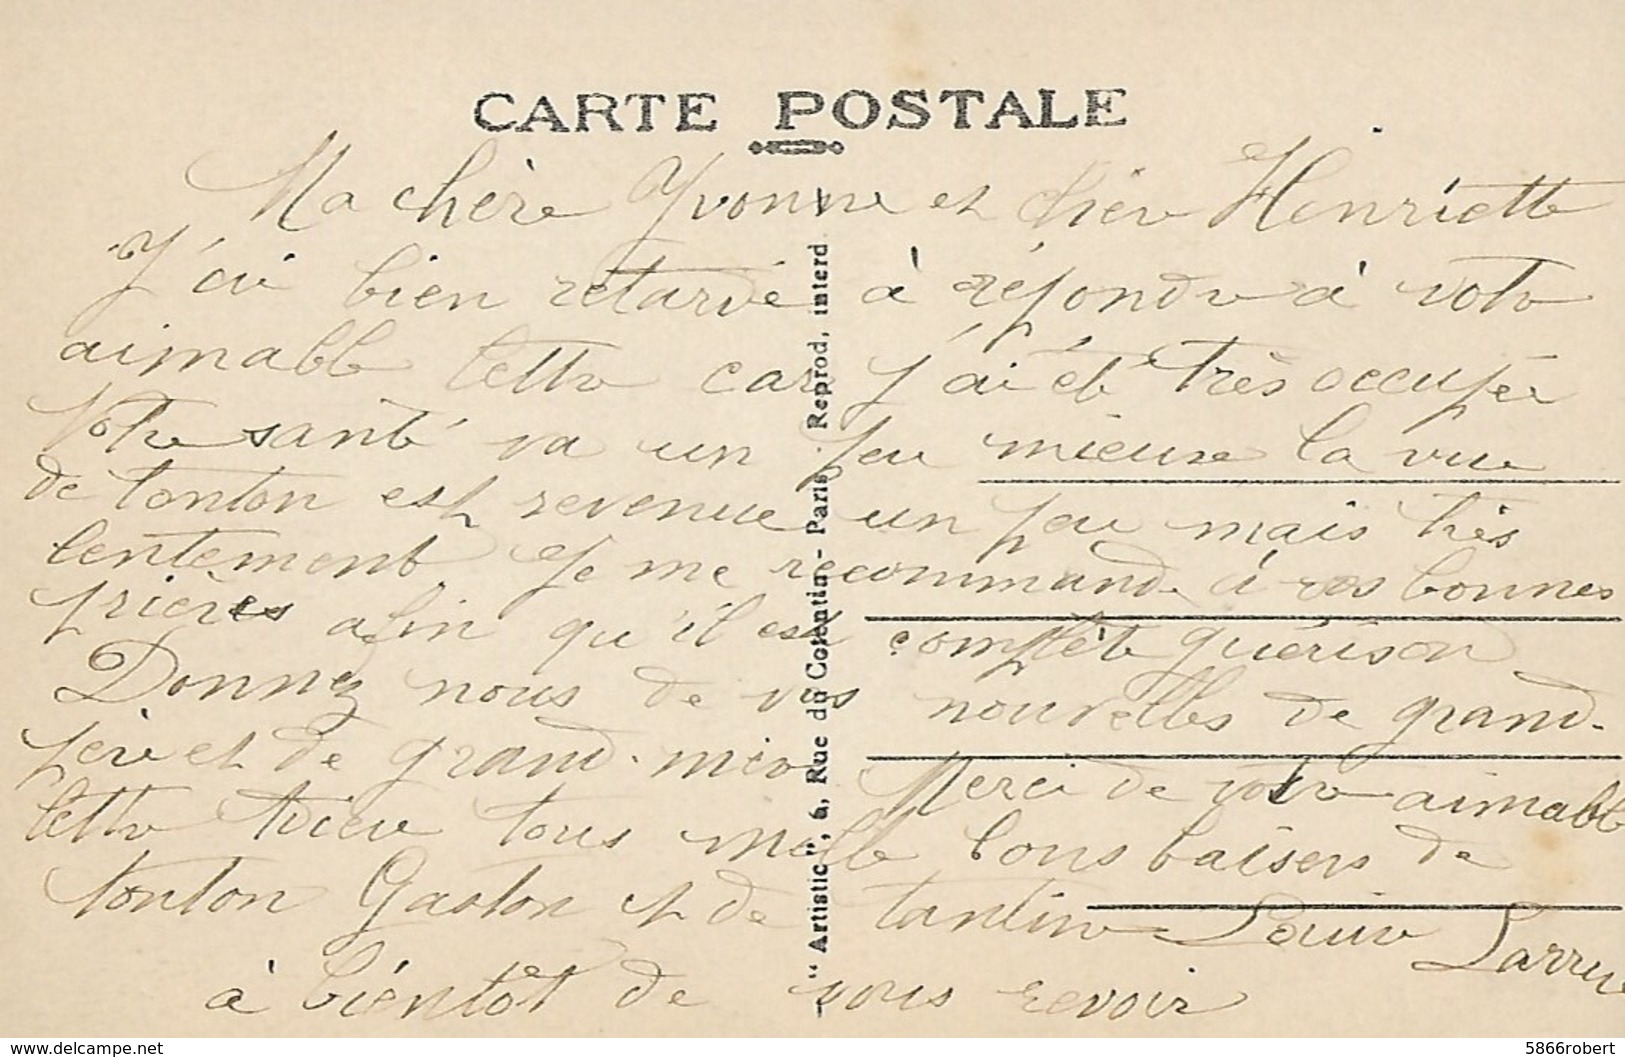 CARTE POSTALE
Ma chère Yvonne et chère Henriette
J'ai bien retardé à répondre à votre
aimable lettre car j'ai été très occupée
Votre santé va un peu mieux la vue
de tonton est revenue un peu mais très
lentement. Je me recommande à vos bonnes
prières afin qu'il est complète guérison
Donnez nous de vos nouvelles de grand-
père et de grand-mère Merci de votre aimable
lettre tous mille bons baisers de
tonton Gaston et de tantine Louise Larrue
à bientôt de vous revoir
"Artistic", 6a, Rue du Cotentin - Paris Reprod. interd
www.delcampe.net
5866robert